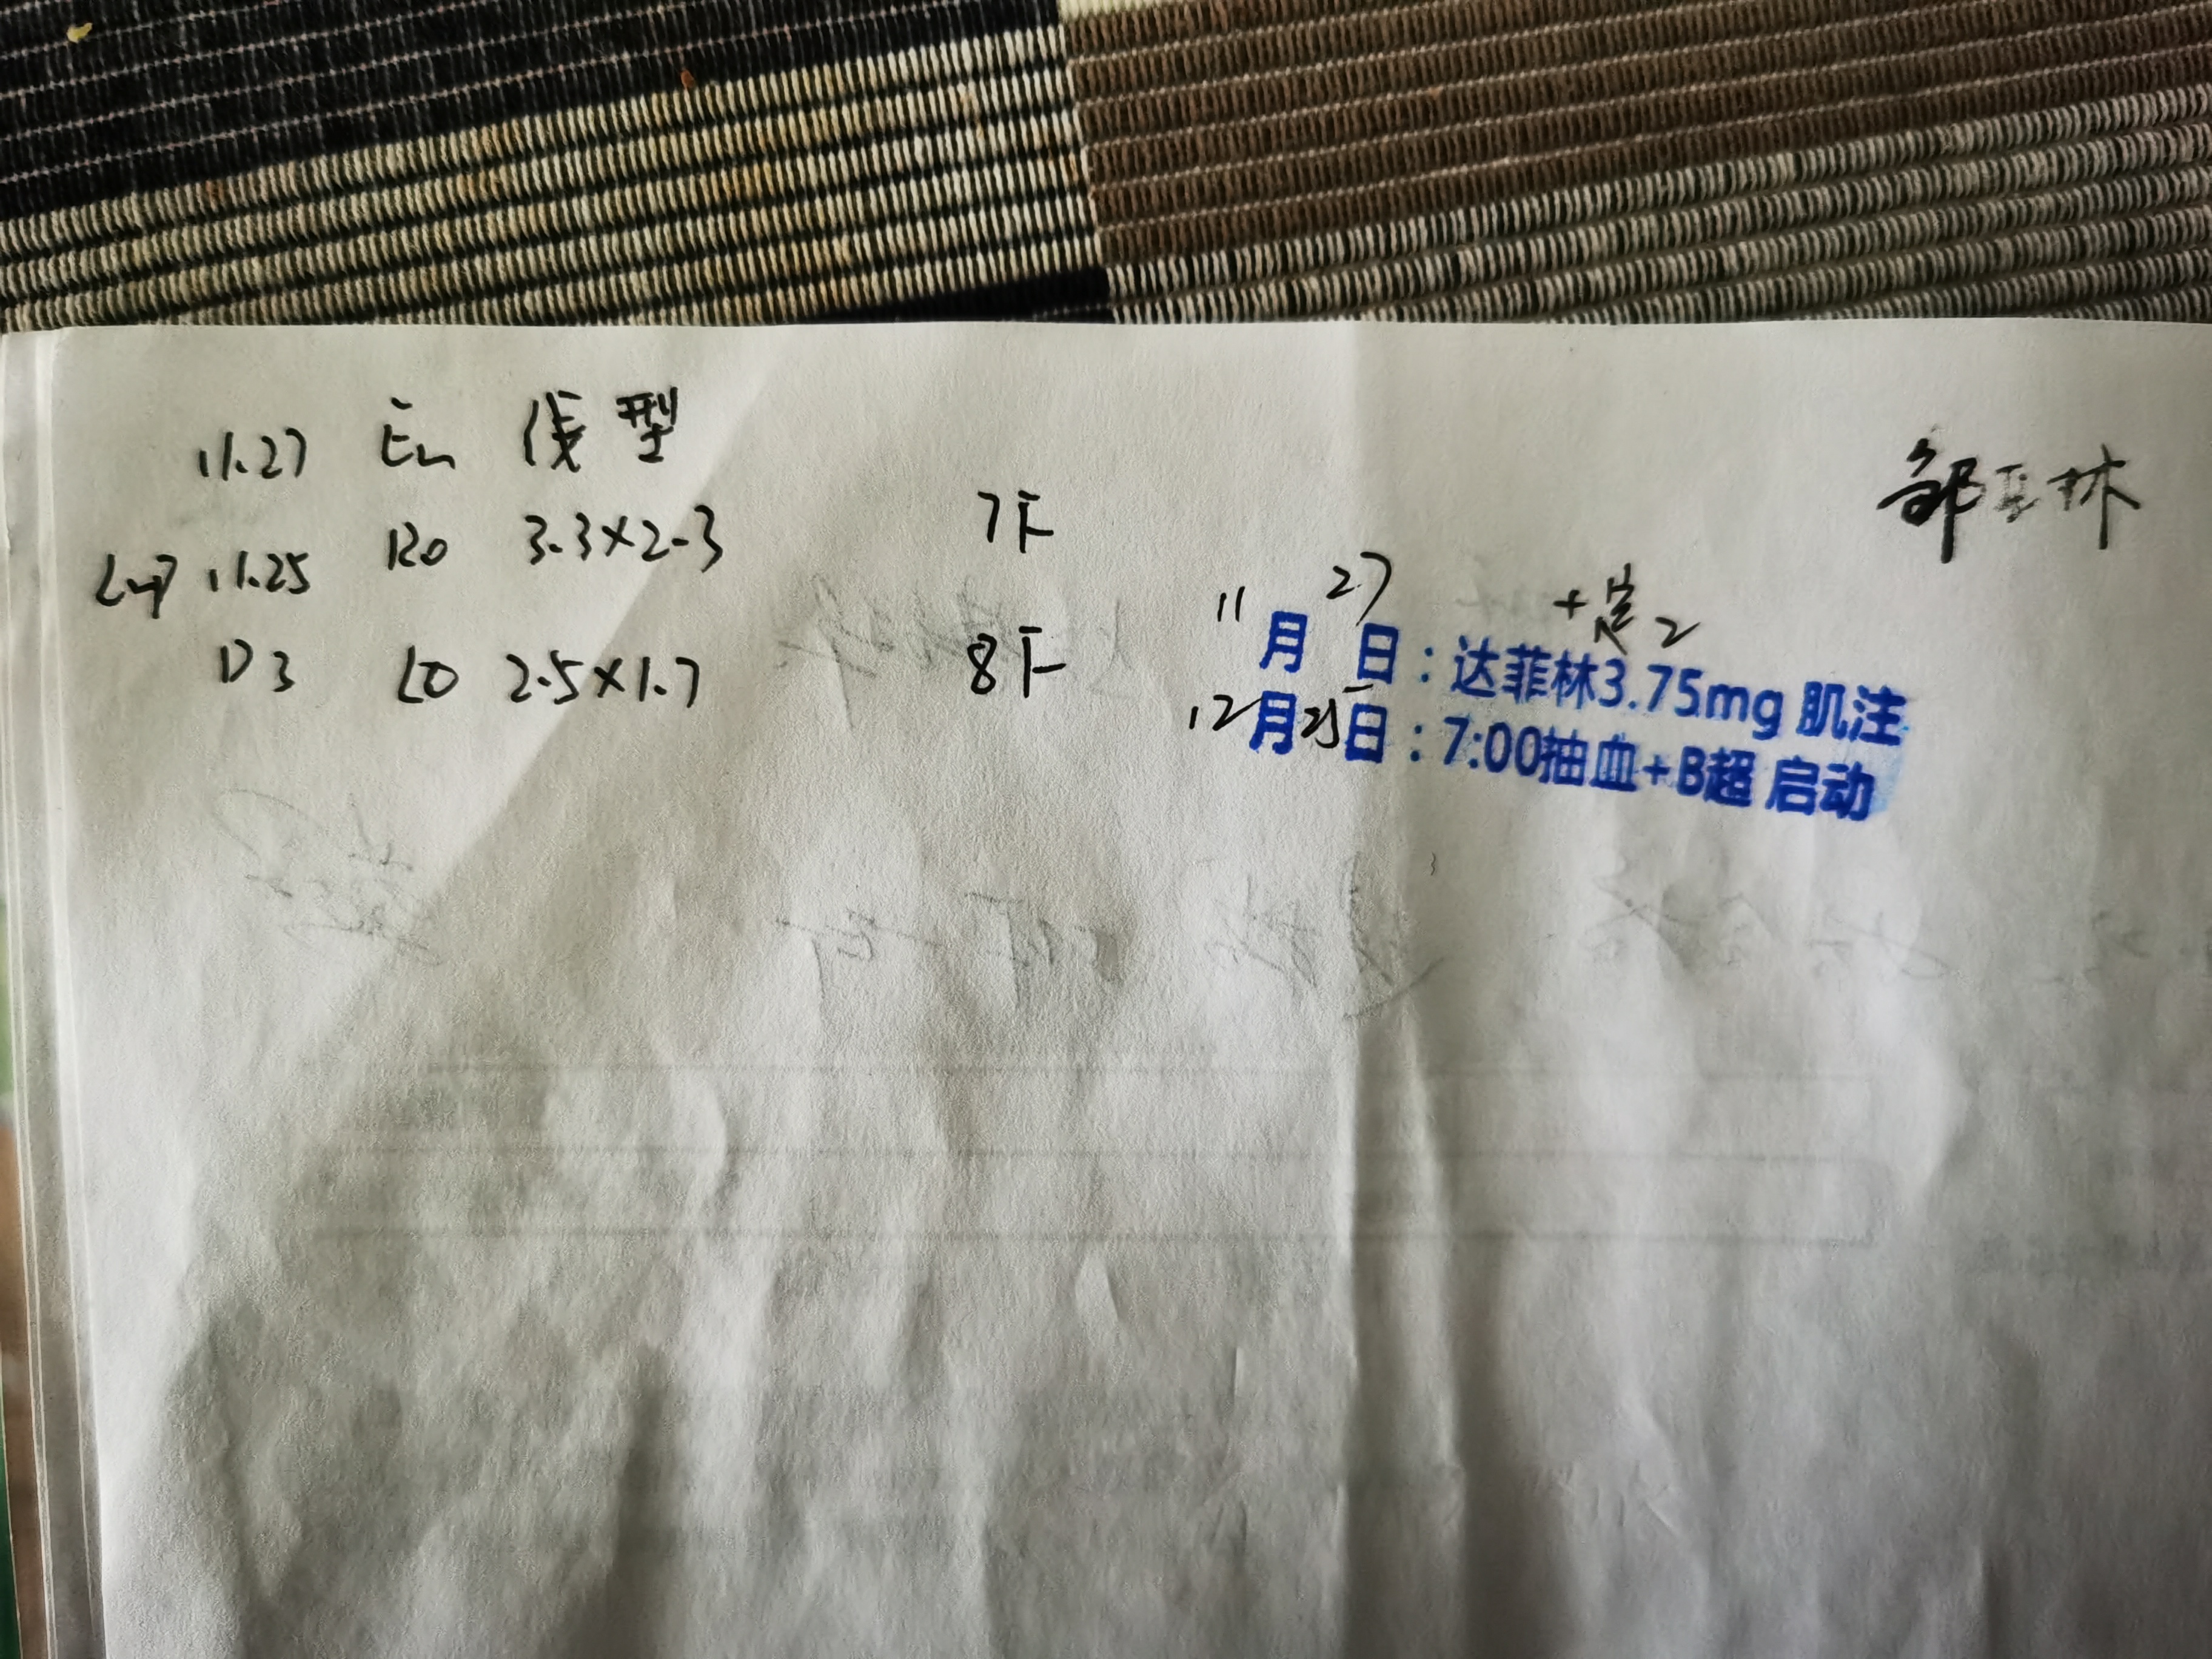 11.27 En 线型
Ro 3.3×2.3 7F
Lmp 11.25
D3 LO 2.5×1.7 8F
邹玉林
+ 2
11月27日：达菲林3.75mg 肌注
12月25日：7:00抽血+B超 启动